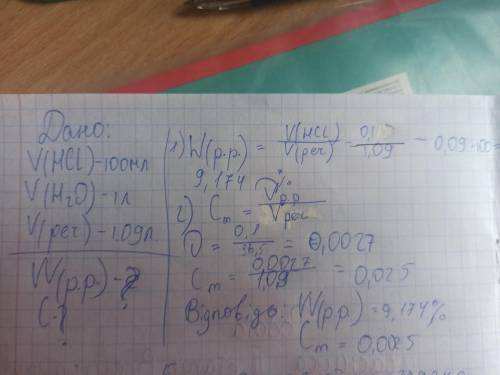 Дано:
V(HCl)-100мл
V(H₂O)-1л
V(реч)-1,09л
W(р.р.)-?
C-?
1) W(р.р.) = V(HCl)/V(реч) = 0,1/1,09 = 0,09·100=
9,174 %
2) Cm = V р.р/V реч
D = 0,1/36,5 = 0,0027
Cm = 0,0027/1,09 = 0,025
Відповідь: W(р.р.)=9,174%
Cm = 0,0025